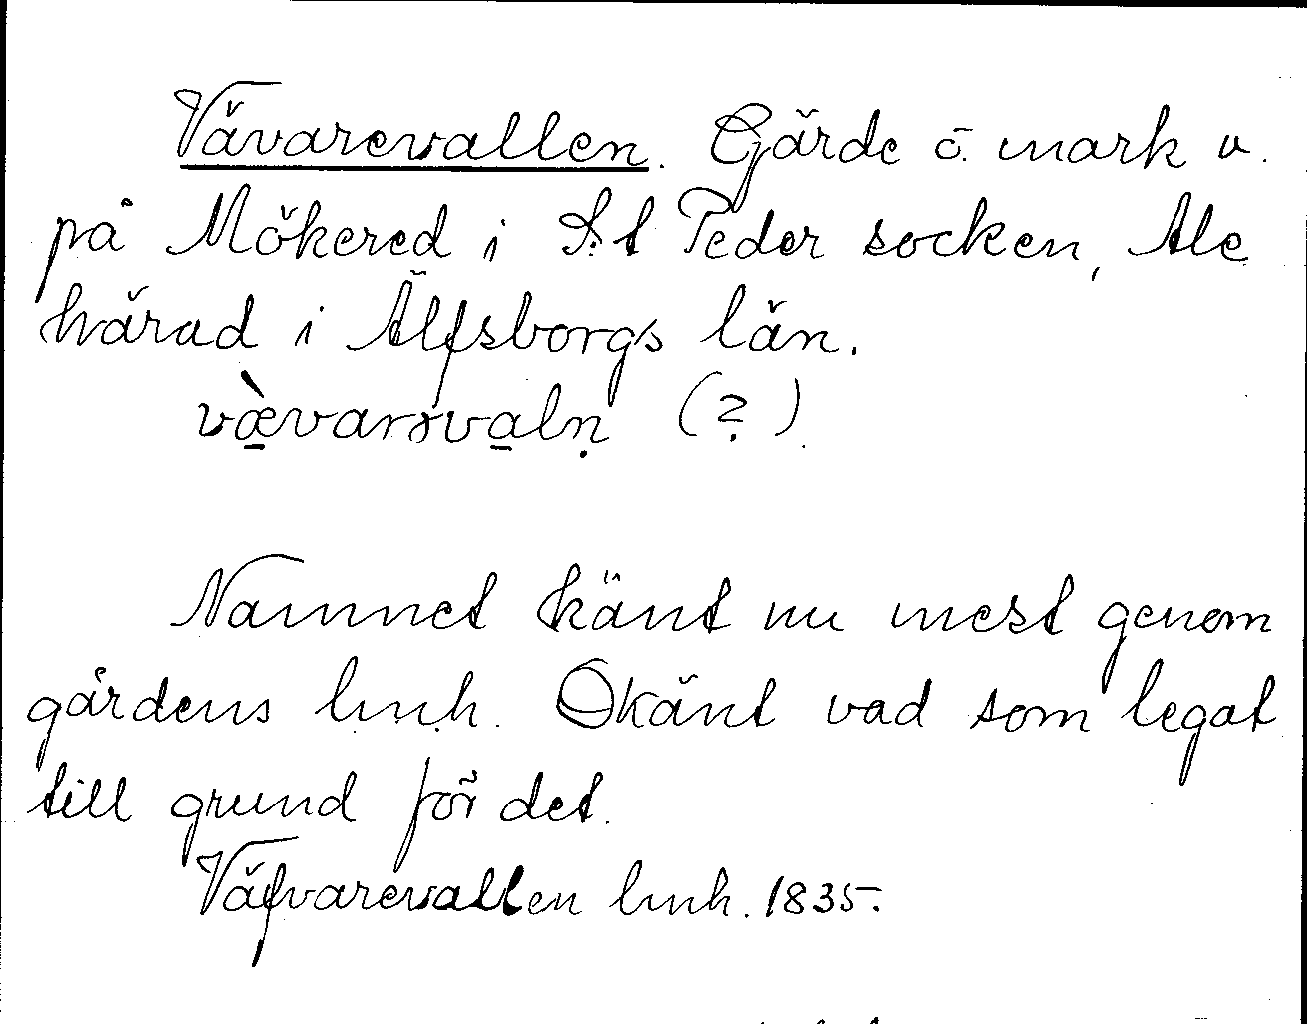 Vävarevallen. Gärde o. mark v.
på Mökered i S:t Peder socken, Ale
härad i Älfsborgs län.
væ̀varəvaln̥ (?)
Namnet känt nu mest genom
gårdens lmh. Okänt vad som legat
till grund för det.
Väfvarevallen lmh. 1835.